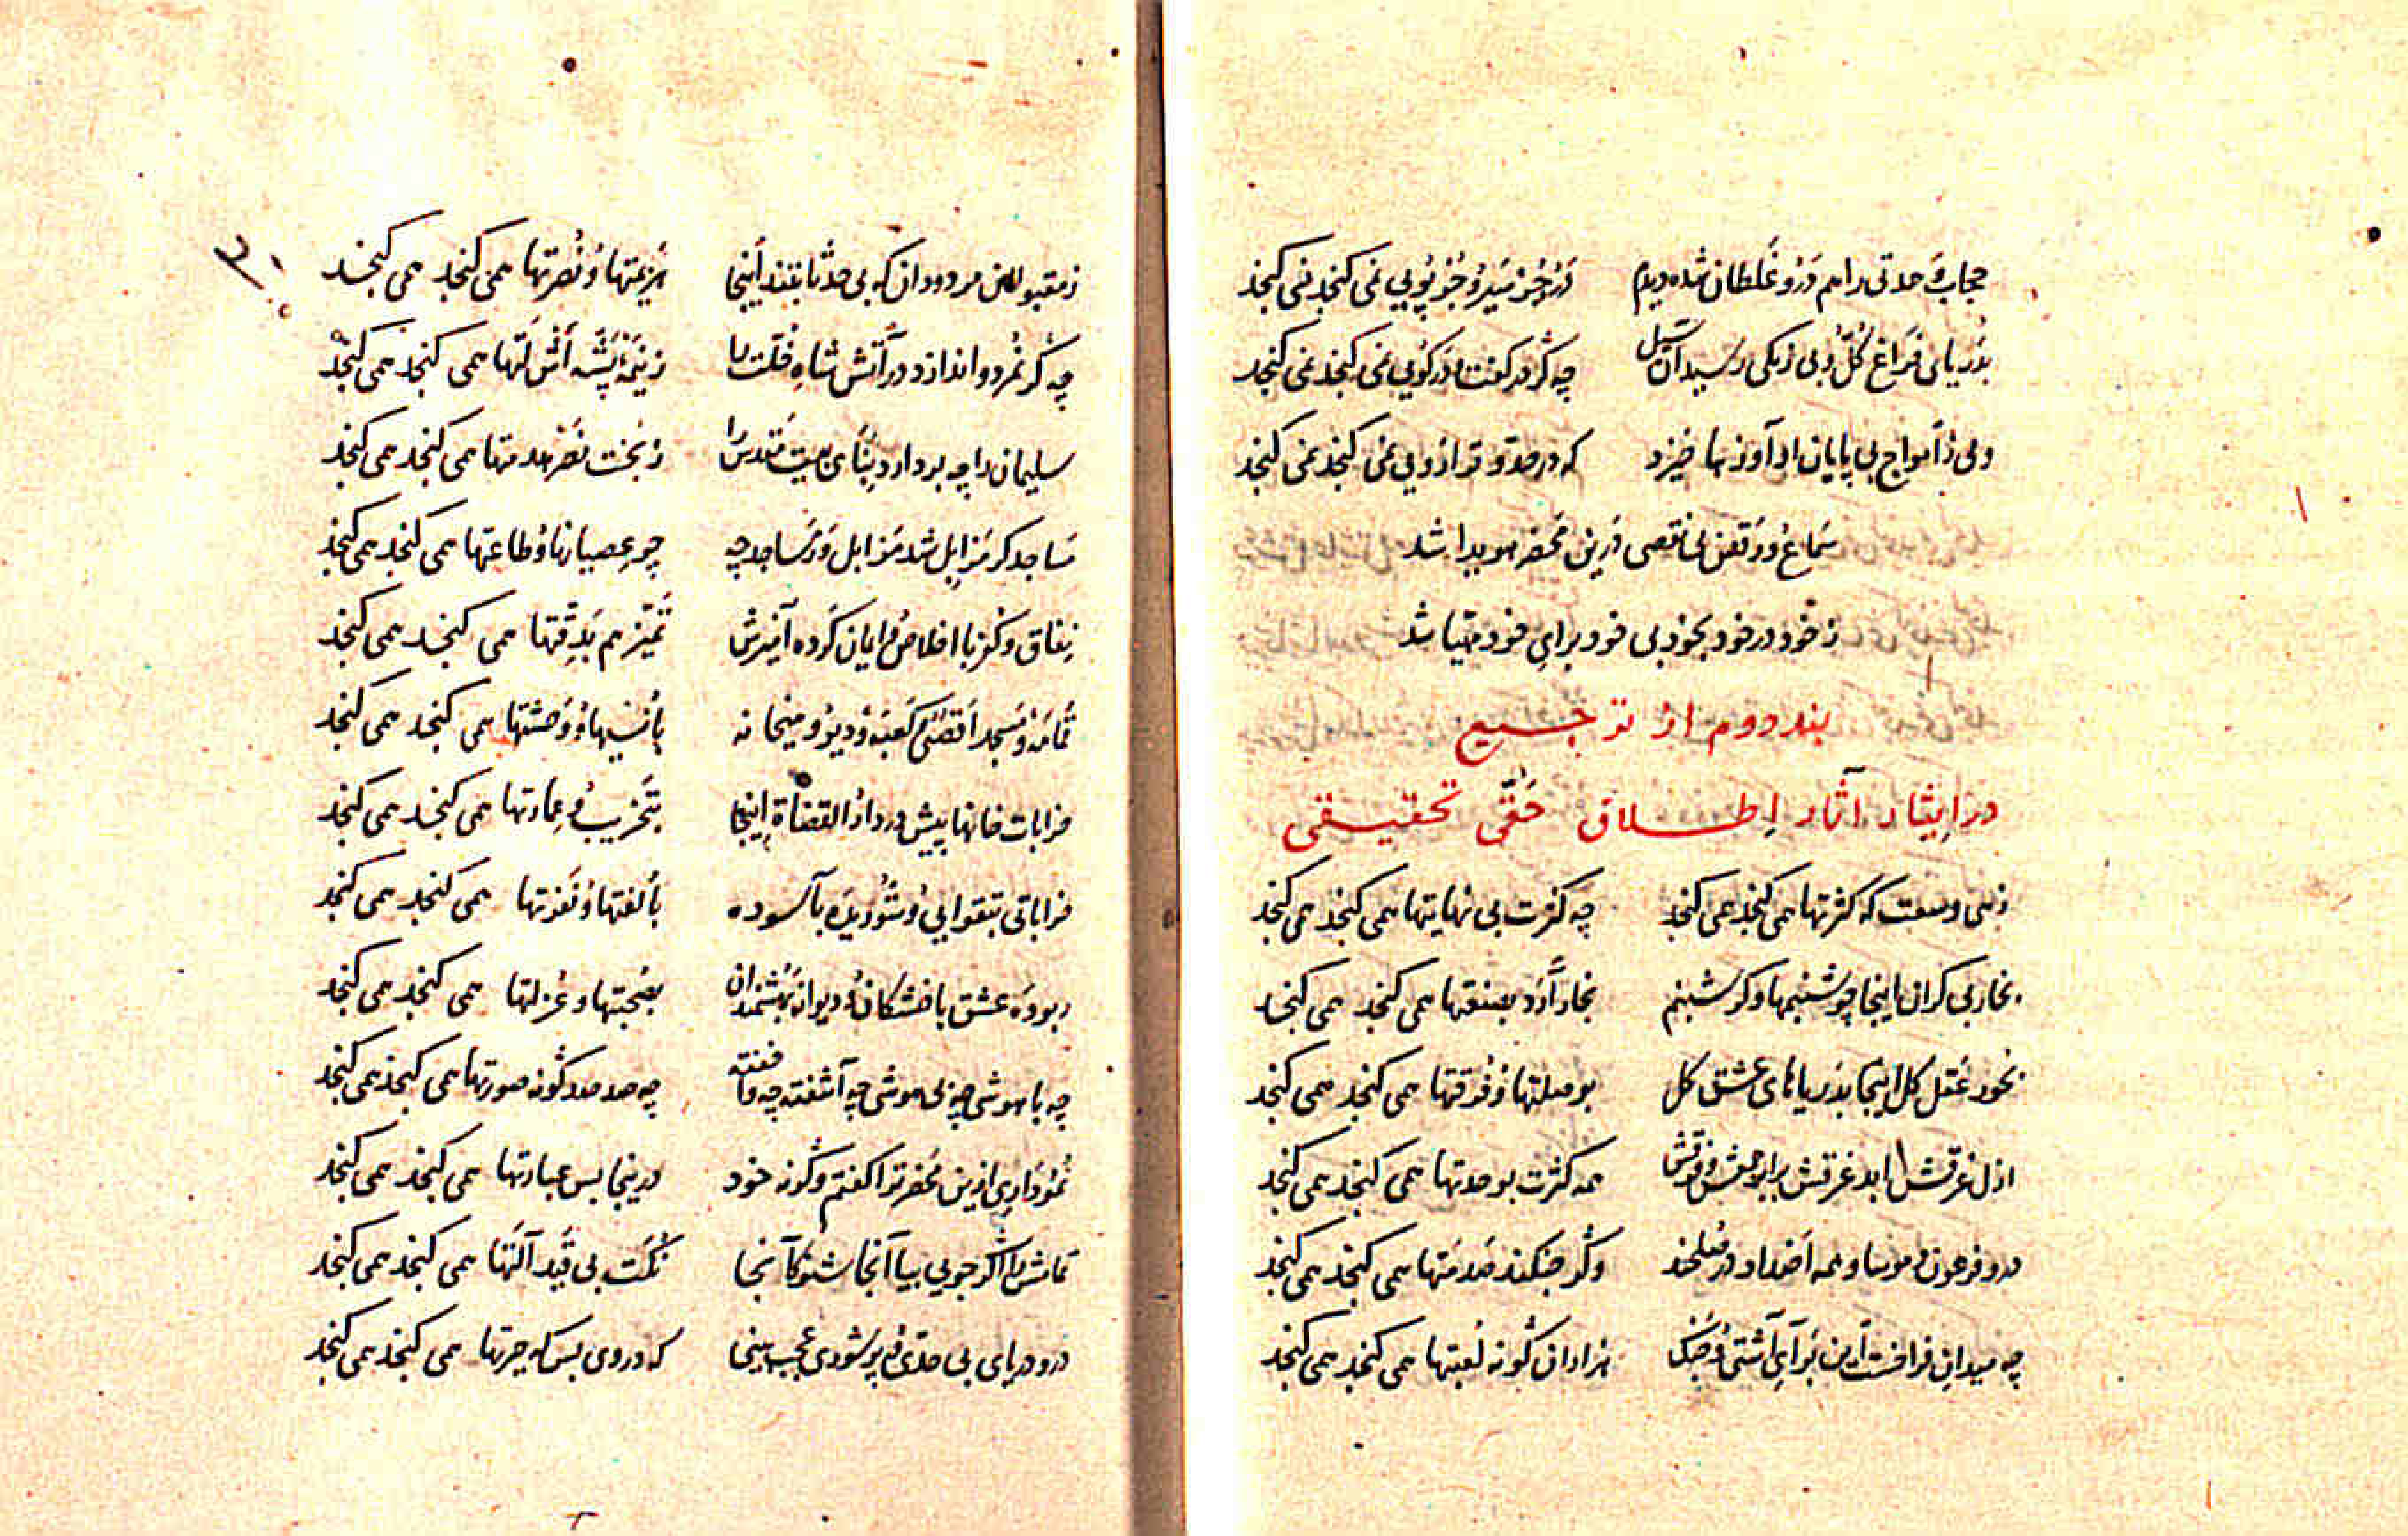 حجاب وحدتی را هم درو غلطان شده دیدم درو جز سیر و جز پویی نمی کنجد نمی کنجد
بدریای فراغ کل ولی زمکی رسید آن سیل چه کر در کفت و در کویی نمی کنجد نمی کنجد
ولی ز امواج بی پایان او آوازها خیزد که در صد و ترازویی نمی کنجد نمی کنجد
سماع و رقص بی نقصی درین محضر هویدا شد
ز خود در خود بخود بی خود برای خود مهیا شد
بند دوم از ترجیع
در ایثار آثار اطلاق حقی تحقیقی
زهی وسعت که کثرتها همی کنجد همی کنجد چه کثرت بی نهایتها همی کنجد همی کنجد
بحار بی کران اینجا چو شبنمها و کو شبنم بحار آرد بصنعتها همی کنجد همی کنجد
بخور عقل کل اینجا بدریاهای عشق کل بوصلتها و فرقتها همی کنجد همی کنجد
ازل غرقش ابد غرقش برابر همه کثرت بوحدتها همی کنجد همی کنجد
درو فرعون و موسا و همه اضداد در صلحند وکر جنکند صدمتها همی کنجد همی کنجد
چه میدان فراخست این برای آشتی و جنک هزاران کونه لعبتها همی کنجد همی کنجد
ز مقبولان مردودان که بی حد ثابتند اینجا هزیمتها و نصرتها همی کنجد همی کنجد
چه کر نمرود اندازد در آتش شاه خلت را ز نیم پشه اش لتها همی کنجد همی کنجد
سلیمان را چه بر دارد بنای بیت مقدس را ز بخت نصر هدمتها همی کنجد همی کنجد
مساجد کر مزابل شد مزابل ور مساجد چه چو عصیانها و طاعتها همی کنجد همی کنجد
نفاق و کفر با اخلاص و ایمان کرده آمیزش تمیز هم بدقتها همی کنجد همی کنجد
و مسجد اقصی کعبه و دیر و میخانه بانسیها و وحشتها همی کنجد همی کنجد
خرابات خانها پیش در دار القضاة اینجا بتخریب و عمارتها همی کنجد همی کنجد
خراباتی بتقوایی و شوریده بآسوده بالفتها و نفرتها همی کنجد همی کنجد
ربوده عشق با خشکان و دیوانه بهشمندان بصحبتها و عزلتها همی کنجد همی کنجد
چه با هوشی چه بی هوشی چه آشفته چه وا خفته چه صد صد کونه صورتها همی کنجد همی کنجد
نموداری ازین محضر ترا کفتم وکر نه خود درینجا بس عبارتها همی کنجد همی کنجد
تماشا کر جویی بیا آنجا شنو کآنجا نکت بی قید آلتها همی کنجد همی کنجد
درو دریای بی حدی و پر شوری عجب بینی که در وی بس که حیرتها همی کنجد همی کنجد